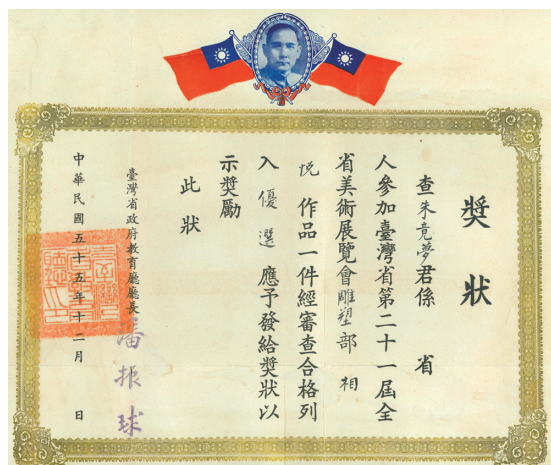 獎狀
查朱竟夢君係 省
人參加臺灣省第二十一屆全
省美術展覽會雕塑部 相
悅 作品一件經審查合格列
入 優選 應予發給獎狀以
示獎勵
此狀
臺灣省政府教育廳廳長 潘振球
中華民國五十五年十二月 日